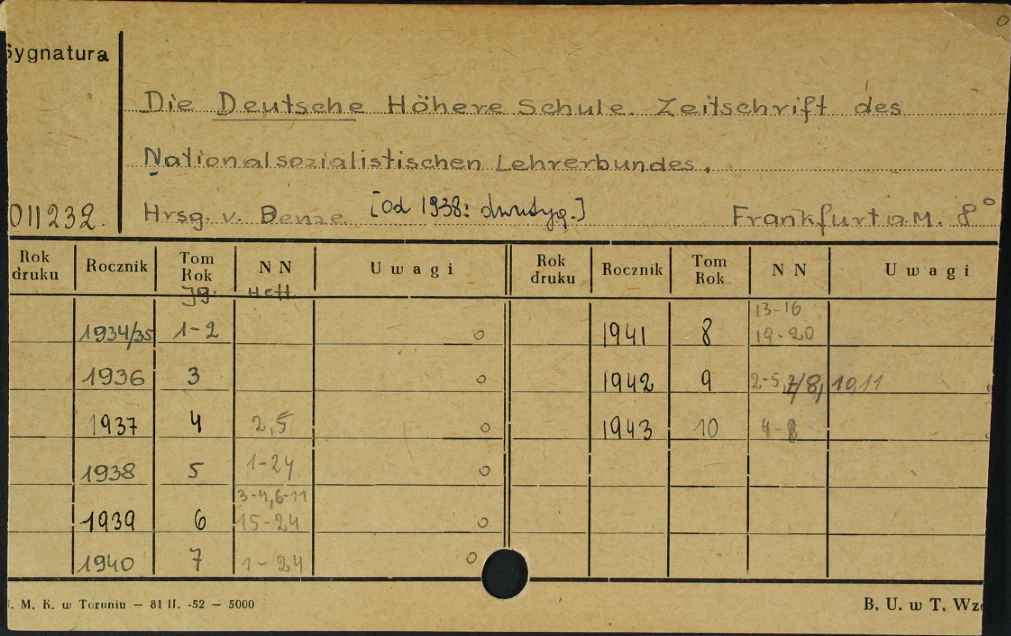 Sygnatura
Die Deutsche Höhere Schule. Zeitschrift des
Nationalsozialistischen Lehrerbundes.
011232. Hrsg. v. Benze [od 1938: dwutyg.] Frankfurt a.M. 8°
Rok druku Rocznik Tom Rok NN Uwagi Rok druku Rocznik Tom Rok NN Uwagi
Jg. Heft
1934/35 1-2 o 1941 8 13-16 19-20
1936 3 o 1942 9 2-5, 7/8, 10,11
1937 4 2,5 o 1943 10 4-8
1938 5 1-24 o
1939 6 3-4,6-11 15-24 o
1940 7 1-24 o
. M. K. w Toruniu — 81 II. -52 — 5000 B. U. w T. Wz